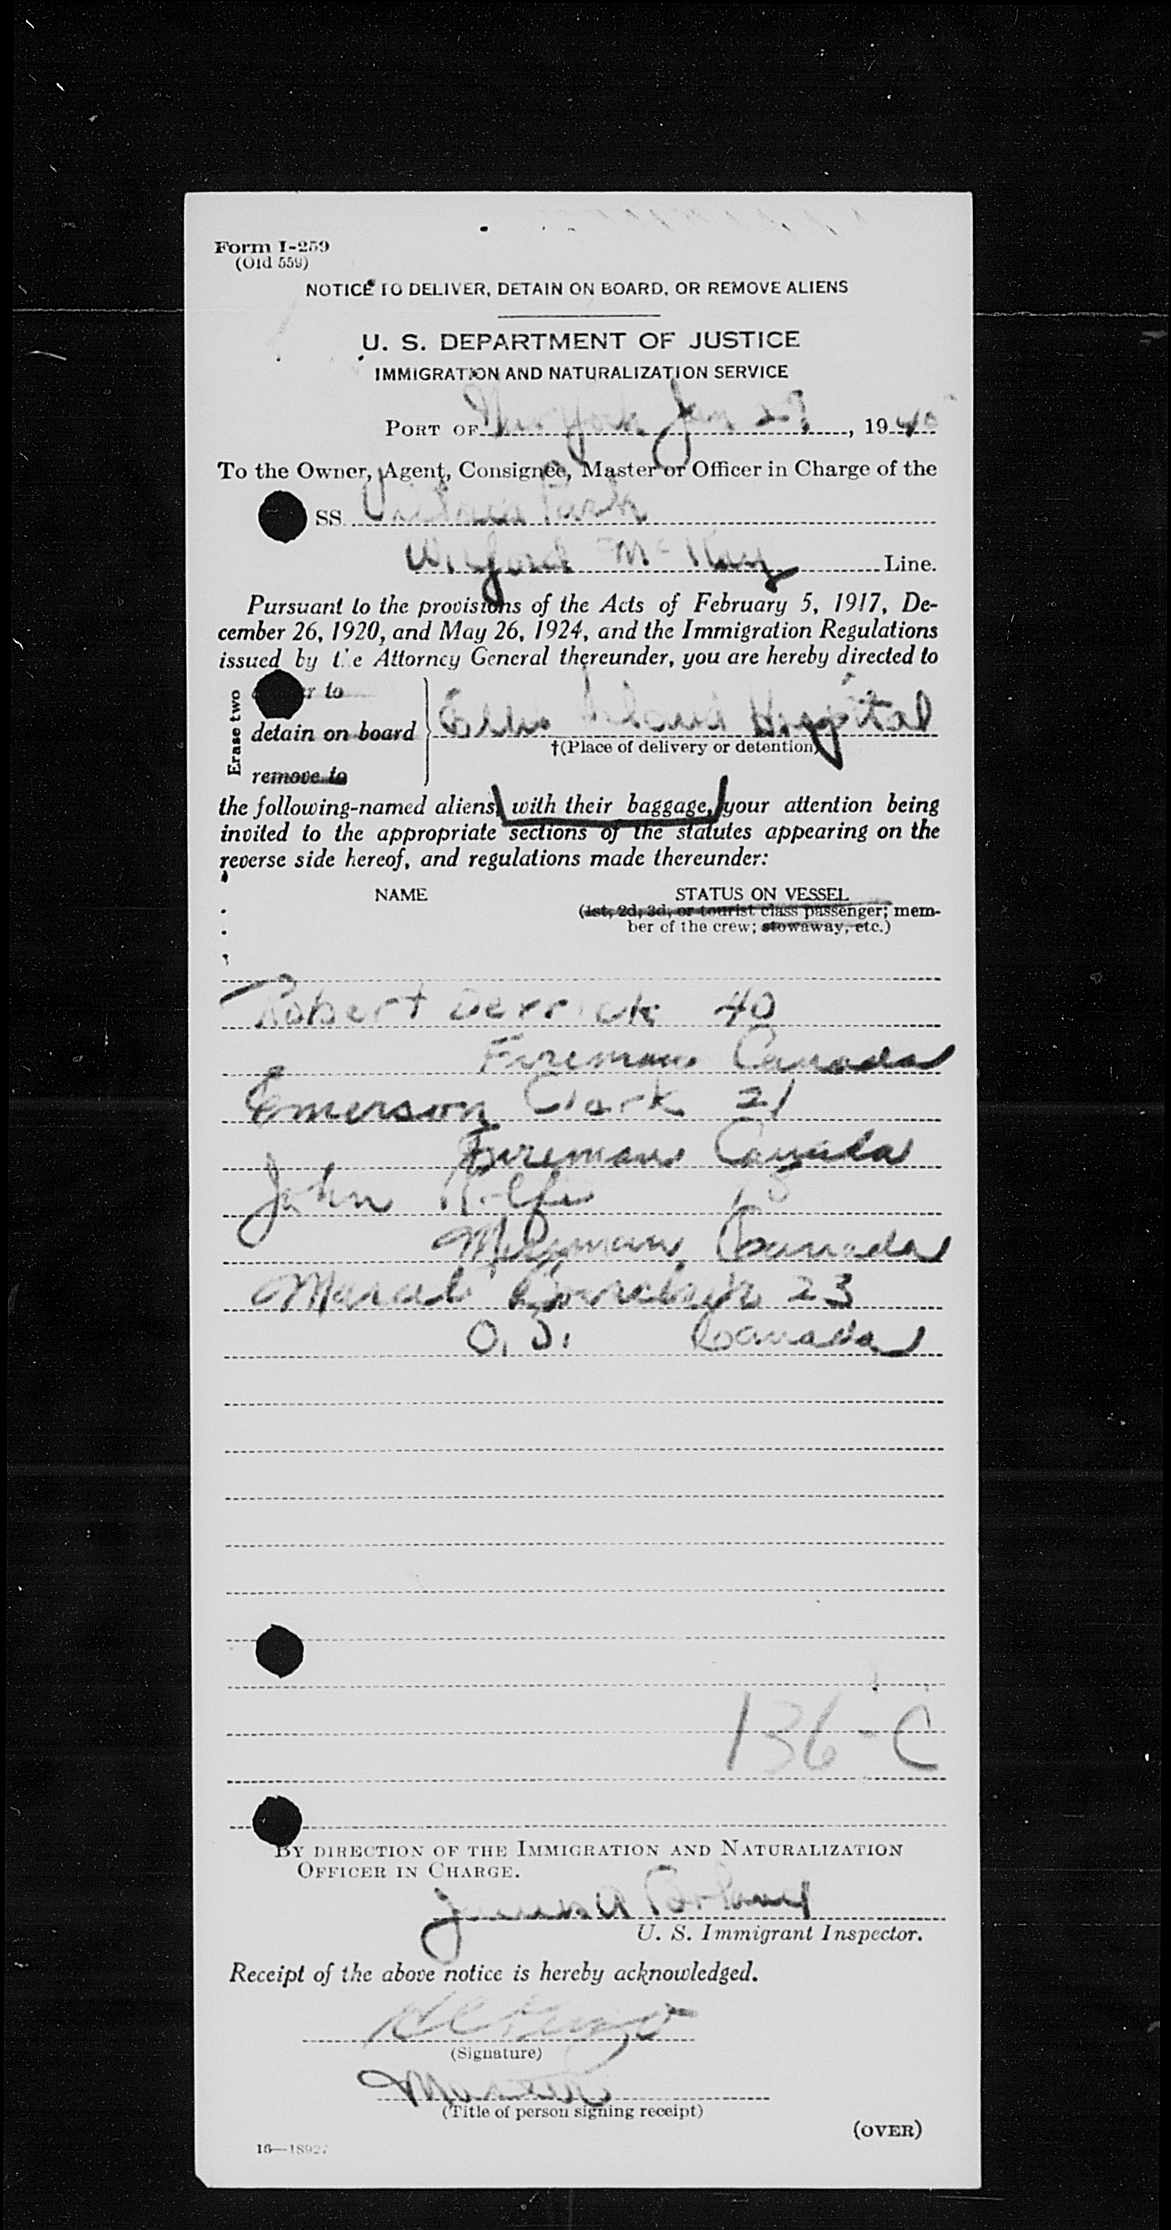 Form I-259
(Old 559)
NOTICE TO DELIVER, DETAIN ON BOARD, OR REMOVE ALIENS
U. S. DEPARTMENT OF JUSTICE
IMMIGRATION AND NATURALIZATION SERVICE
PORT OF New York Jan , 19
To the Owner, Agent, Consignee, Master or Officer in Charge of the
SS. Park
McKay Line.
Pursuant to the provisions of the Acts of February 5, 1917, De-
cember 26, 1920, and May 26, 1924, and the Immigration Regulations
issued by the Attorney General thereunder, you are hereby directed to
Erase two
to
detain on board
remove to
Ellis Island Hospital
†(Place of delivery or detention)
the following-named aliens, with their baggage, your attention being
invited to the appropriate sections of the statutes appearing on the
reverse side hereof, and regulations made thereunder:
NAME STATUS ON VESSEL
(1st, 2d, 3d, or tourist class passenger; mem-
ber of the crew; stowaway, etc.)
Robert Derrick 40
Fireman Canada
Emerson Clark 21
Fireman Canada
John Rolfe
Canada
23
O.S. Canada
136-C
BY DIRECTION OF THE IMMIGRATION AND NATURALIZATION
OFFICER IN CHARGE.
James A
U. S. Immigrant Inspector.
Receipt of the above notice is hereby acknowledged.
(Signature)
Master
(Title of person signing receipt)
(OVER)
16—18927